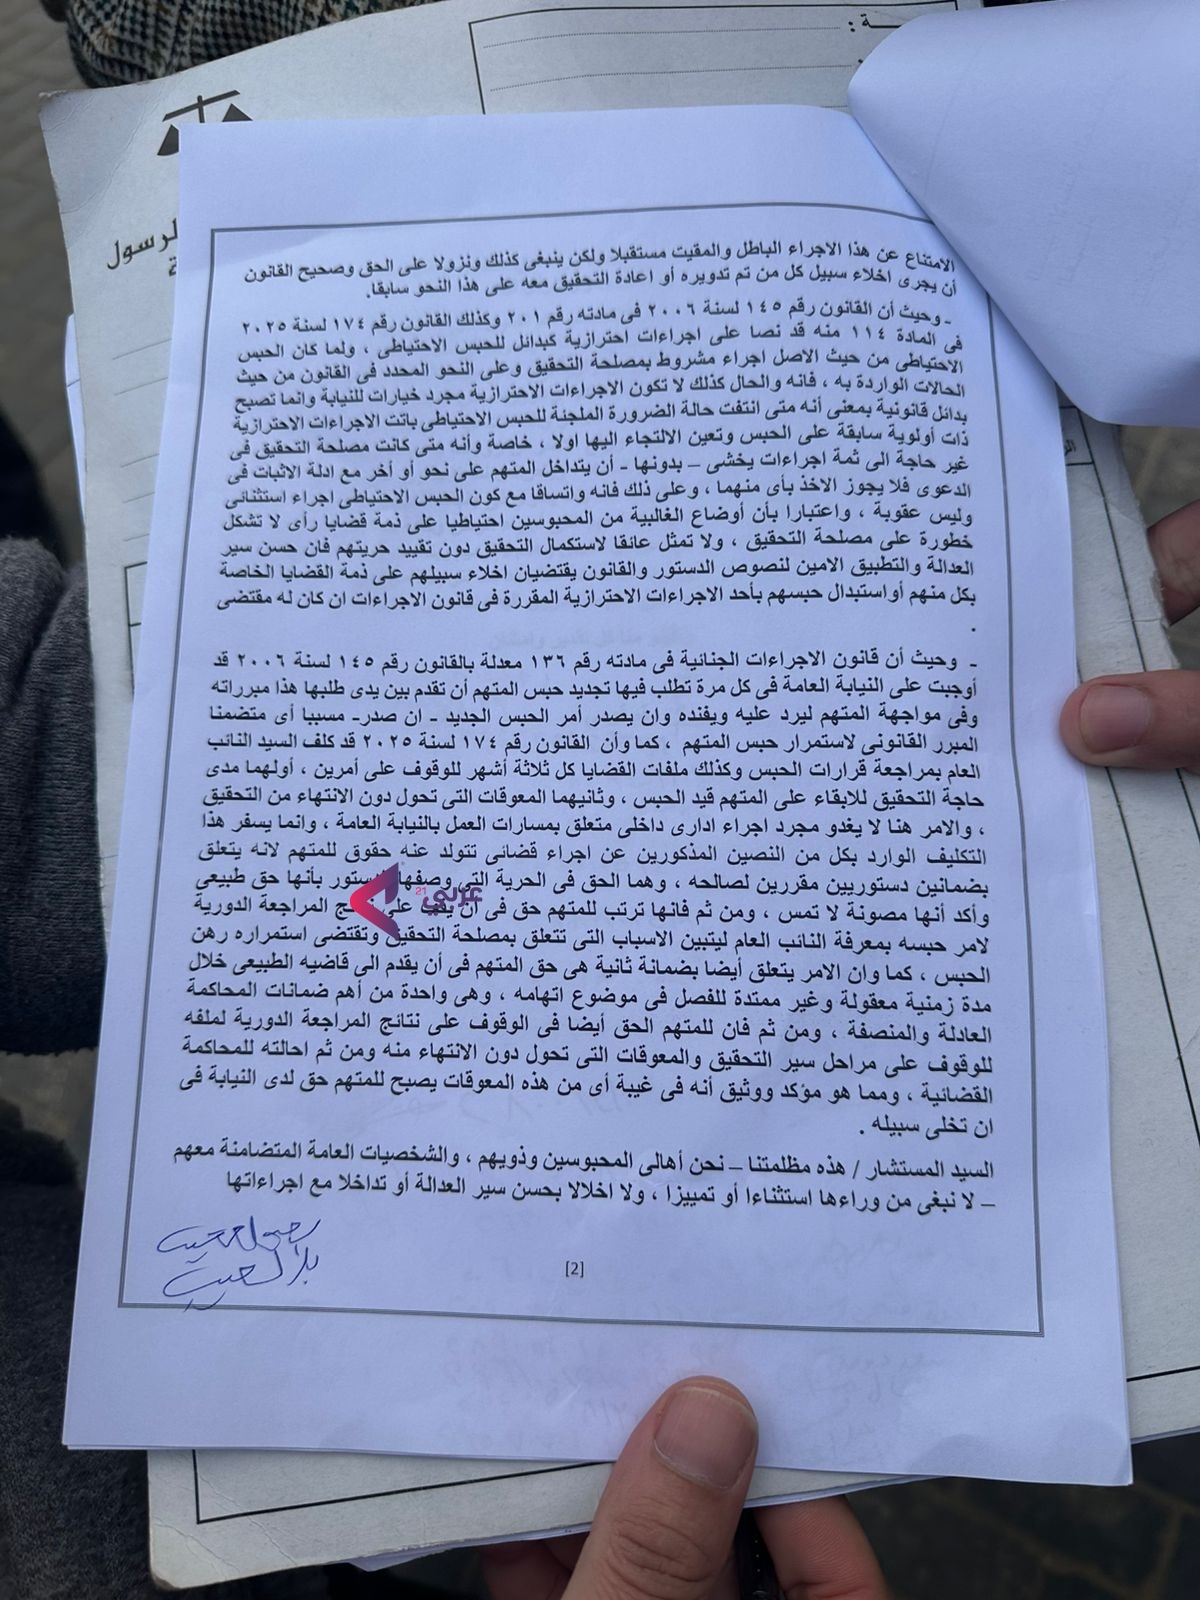 ـة :
لرسول
الامتناع عن هذا الاجراء الباطل والمقيت مستقبلا ولكن ينبغى كذلك ونزولا على الحق وصحيح القانون
أن يجرى اخلاء سبيل كل من تم تدويره أو اعادة التحقيق معه على هذا النحو سابقا.
ـ وحيث أن القانون رقم ١٤٥ لسنة ٢٠٠٦ فى مادته رقم ٢٠١ وكذلك القانون رقم ١٧٤ لسنة ٢٠٢٥
فى المادة ١١٤ منه قد نصا على اجراءات احترازية كبدائل للحبس الاحتياطى ، ولما كان الحبس
الاحتياطى من حيث الاصل اجراء مشروط بمصلحة التحقيق وعلى النحو المحدد فى القانون من حيث
الحالات الواردة به ، فانه والحال كذلك لا تكون الاجراءات الاحترازية مجرد خيارات للنيابة وانما تصبح
بدائل قانونية بمعنى أنه متى انتفت حالة الضرورة الملجئة للحبس الاحتياطى باتت الاجراءات الاحترازية
ذات أولوية سابقة على الحبس وتعين الالتجاء اليها اولا ، خاصة وأنه متى كانت مصلحة التحقيق فى
غير حاجة الى ثمة اجراءات يخشى – بدونها - أن يتداخل المتهم على نحو أو أخر مع ادلة الاثبات فى
الدعوى فلا يجوز الاخذ بأى منهما ، وعلى ذلك فانه واتساقا مع كون الحبس الاحتياطى اجراء استثنائى
وليس عقوبة ، واعتبارا بأن أوضاع الغالبية من المحبوسين احتياطيا على ذمة قضايا رأى لا تشكل
خطورة على مصلحة التحقيق ، ولا تمثل عائقا لاستكمال التحقيق دون تقييد حريتهم فان حسن سير
العدالة والتطبيق الامين لنصوص الدستور والقانون يقتضيان اخلاء سبيلهم على ذمة القضايا الخاصة
بكل منهم أواستبدال حبسهم بأحد الاجراءات الاحترازية المقررة فى قانون الاجراءات ان كان له مقتضى
.
- وحيث أن قانون الاجراءات الجنائية فى مادته رقم ١٣٦ معدلة بالقانون رقم ١٤٥ لسنة ٢٠٠٦ قد
أوجبت على النيابة العامة فى كل مرة تطلب فيها تجديد حبس المتهم أن تقدم بين يدى طلبها هذا مبرراته
وفى مواجهة المتهم ليرد عليه ويفنده وان يصدر أمر الحبس الجديد - ان صدر- مسببا أى متضمنا
المبرر القانونى لاستمرار حبس المتهم ، كما وأن القانون رقم ١٧٤ لسنة ٢٠٢٥ قد كلف السيد النائب
العام بمراجعة قرارات الحبس وكذلك ملفات القضايا كل ثلاثة أشهر للوقوف على أمرين ، أولهما مدى
حاجة التحقيق للابقاء على المتهم قيد الحبس ، وثانيهما المعوقات التى تحول دون الانتهاء من التحقيق
، والامر هنا لا يغدو مجرد اجراء ادارى داخلى متعلق بمسارات العمل بالنيابة العامة ، وانما يسفر هذا
التكليف الوارد بكل من النصين المذكورين عن اجراء قضائى تتولد عنه حقوق للمتهم لانه يتعلق
بضمانين دستوريين مقررين لصالحه ، وهما الحق فى الحرية التى وصفها الدستور بأنها حق طبيعى
وأكد أنها مصونة لا تمس ، ومن ثم فانها ترتب للمتهم حق فى أن يقف على نتائج المراجعة الدورية
لامر حبسه بمعرفة النائب العام ليتبين الاسباب التى تتعلق بمصلحة التحقيق وتقتضى استمراره رهن
الحبس ، كما وان الامر يتعلق أيضا بضمانة ثانية هى حق المتهم فى أن يقدم الى قاضيه الطبيعى خلال
مدة زمنية معقولة وغير ممتدة للفصل فى موضوع اتهامه ، وهى واحدة من أهم ضمانات المحاكمة
العادلة والمنصفة ، ومن ثم فان للمتهم الحق أيضا فى الوقوف على نتائج المراجعة الدورية لملفه
للوقوف على مراحل سير التحقيق والمعوقات التى تحول دون الانتهاء منه ومن ثم احالته للمحاكمة
القضائية ، ومما هو مؤكد ووثيق أنه فى غيبة أى من هذه المعوقات يصبح للمتهم حق لدى النيابة فى
ان تخلى سبيله .
السيد المستشار / هذه مظلمتنا – نحن أهالى المحبوسين وذويهم ، والشخصيات العامة المتضامنة معهم
– لا نبغى من وراءها استثناءا أو تمييزا ، ولا اخلالا بحسن سير العدالة أو تداخلا مع اجراءاتها
[2]
عربي21